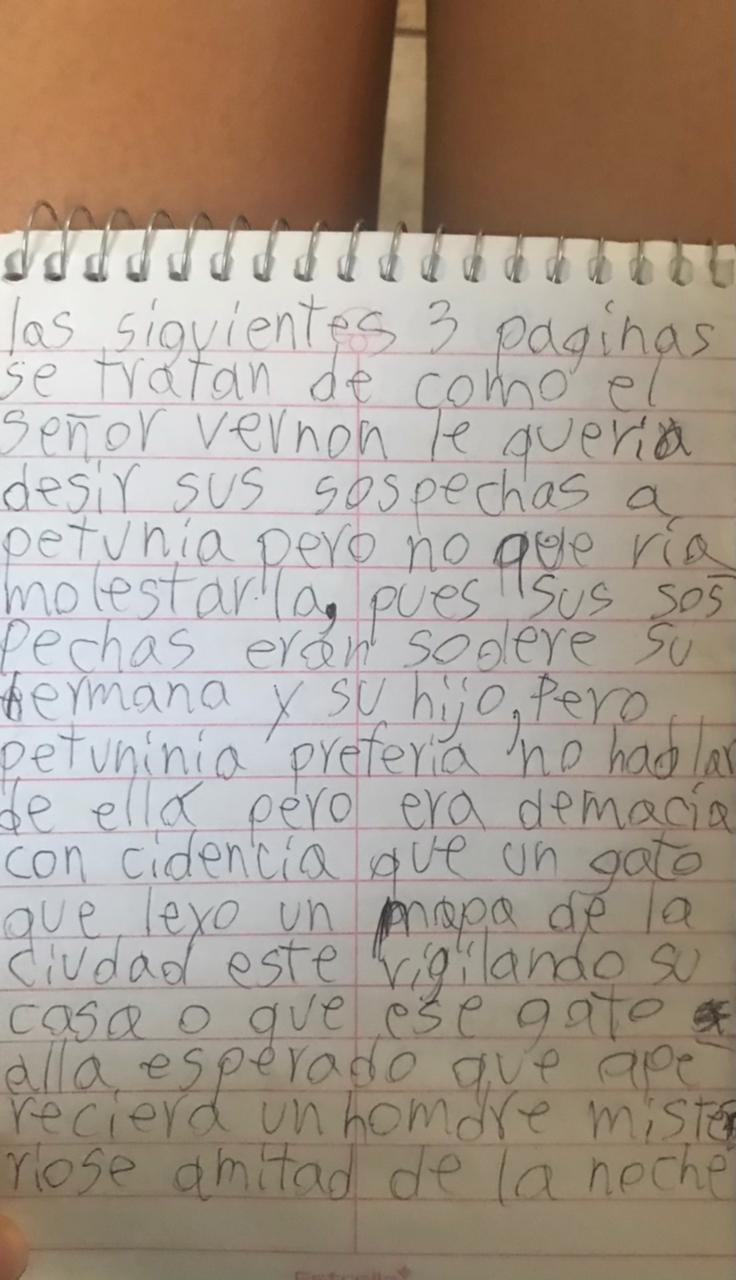 las siguientes 3 paginas
se tratan de como el
señor vernon le queria
desir sus sospechas a
petunia pero no que ria
molestar la, pues sus sos
pechas eran sodere su
hermana y su hijo, Pero
petuninia preferia no hadlar
de ella pero era demacia
con cidencia que un gato
que leyo un mapa de la
ciudad este vigilando su
casa o que ese gato
alla esperado que ape
reciera un homdre miste
riose amitad de la noche